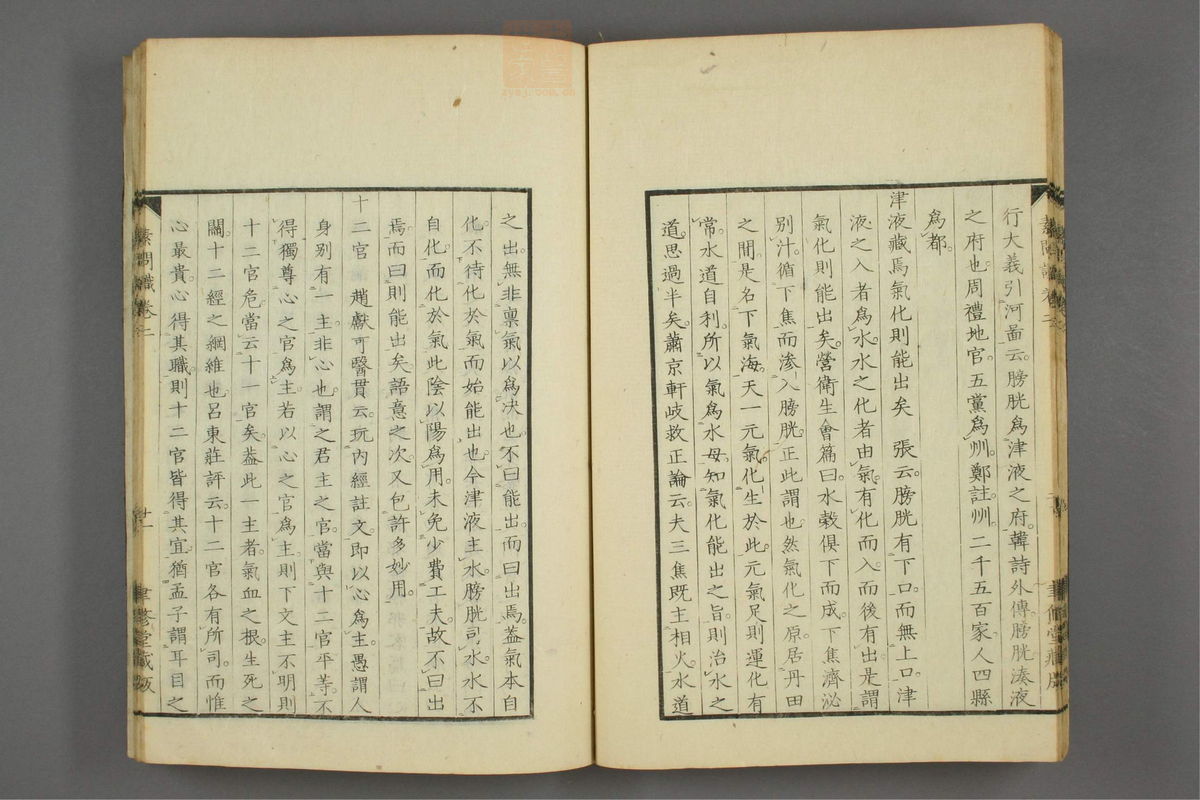 行大義引河啚云。膀胱爲津液之府。韓詩外傳。膀胱湊液
之府也。周禮地官。五黨爲州。鄭註。州。二千五百家。人四縣
爲都。
津液藏焉氣化則能出矣　張云。膀胱有下口。而無上口。津
液之入者爲水。水之化者由氣。有化而入。而後有出。是謂
氣化則能出矣。營衛生會篇曰。水穀俱下而成下焦。濟泌
別汁。循下焦而滲入膀胱。正此謂也。然氣化之原。居丹田
之間。是名下氣海。天一元氣。化生於此。元氣足則運化有
常。水道自利。所以氣爲水母。知氣化能出之旨。則治水之
道。思過半矣。蕭京軒岐救正論云。夫三焦既主相火。水道
之出。無非稟氣以爲決也。不曰能出。而曰出焉。葢氣本自
化。不待化於氣而始能出也。今津液主水。膀胱司水。水不
自化。而化於氣。此陰以陽爲用。未免少費工夫。故不曰出
焉。而曰則能出矣。語意之次。又包許多妙用。
十二官　趙獻可醫貫云。玩内經註文。即以心爲主。愚謂人
身別有一主。非心也。謂之君主之官。當與十二官平等。不
得獨尊心之官爲主。若以心之官爲主。則下文主不明則
十二官危。當云十一官矣。葢此一主者。氣血之根。生死之
關。十二經之綱維也。呂東莊評云。十二官各有所司。而惟
心最貴。心得其職。則十二官皆得其宜。猶孟子謂耳目之
素問識卷二
廿一
聿修堂藏版